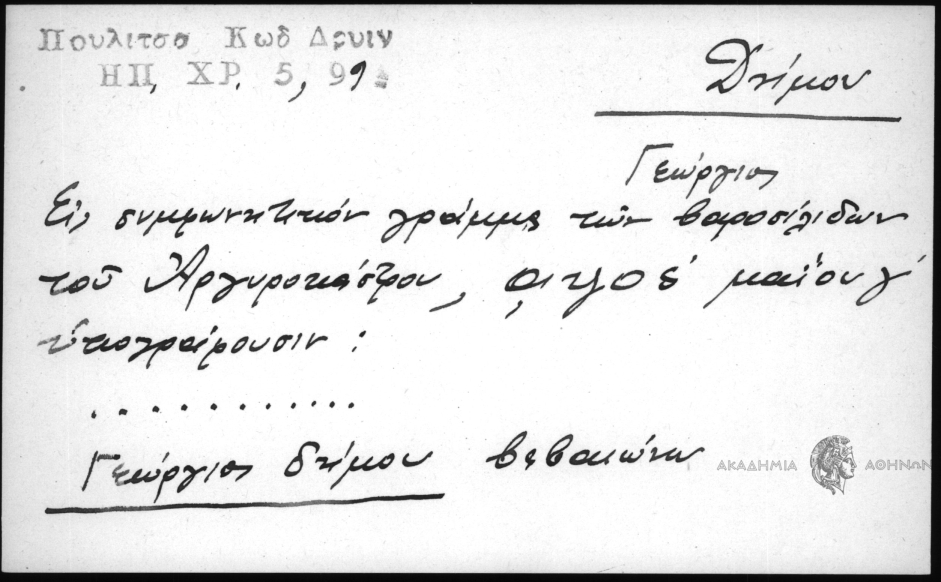 Πουλιτσα Κωδ Δρυιν
ΗΠ. ΧΡ. 5, 91
Δήμου
Γεώργιος
Εις συμφωνητικόν γράμμα των βαροσιλιδων
του Αργυροκάστρου, μαΐου γ΄
υπογράφουσιν :
. . . . . . . . . . . .
Γεώργιος δήμου βεβαιώνω
ΑΚΑΔΗΜΙΑ ΑΘΗΝΩΝ